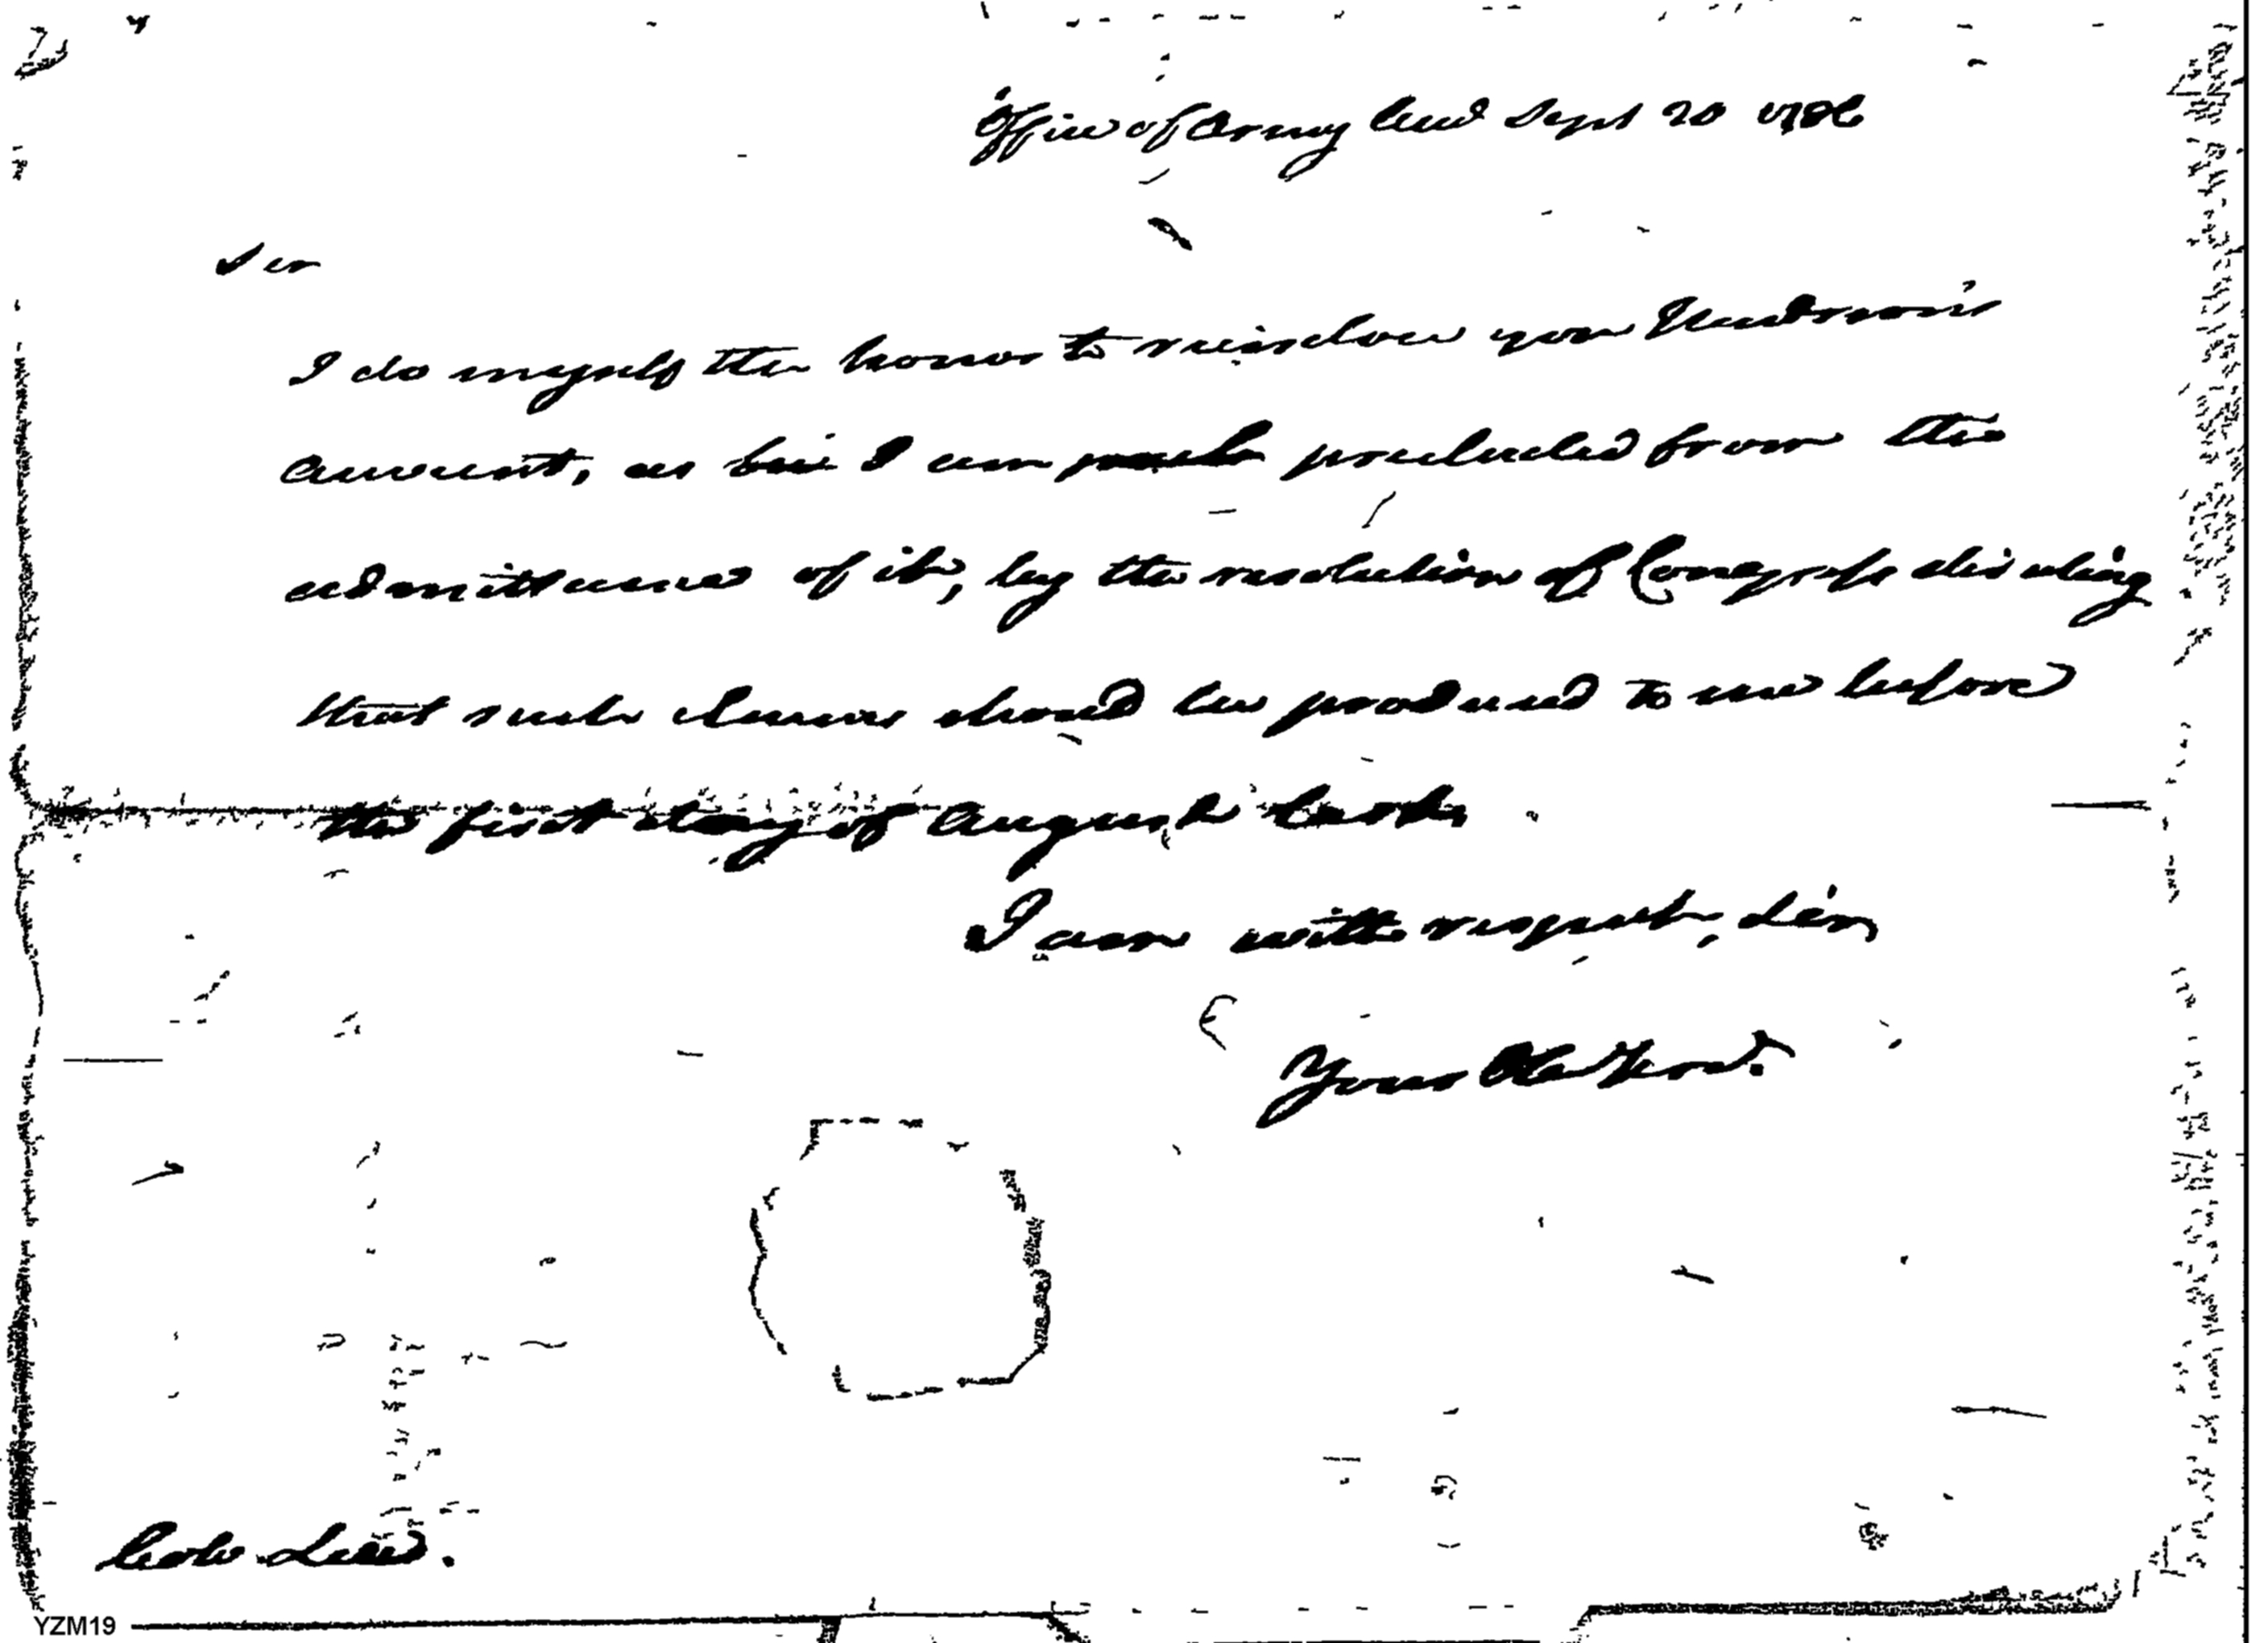 Office of Army Accts Sept 20 1786
Sir
I do myself the honor to reinclose you
account, as here I am precluded from the
admittance of it, by the resolution of Congress directing
that such claims should be produced to me before
the first day of August last.
I am with respect, Sir,
Your Obt Servt.
Colo Lee.
YZM19